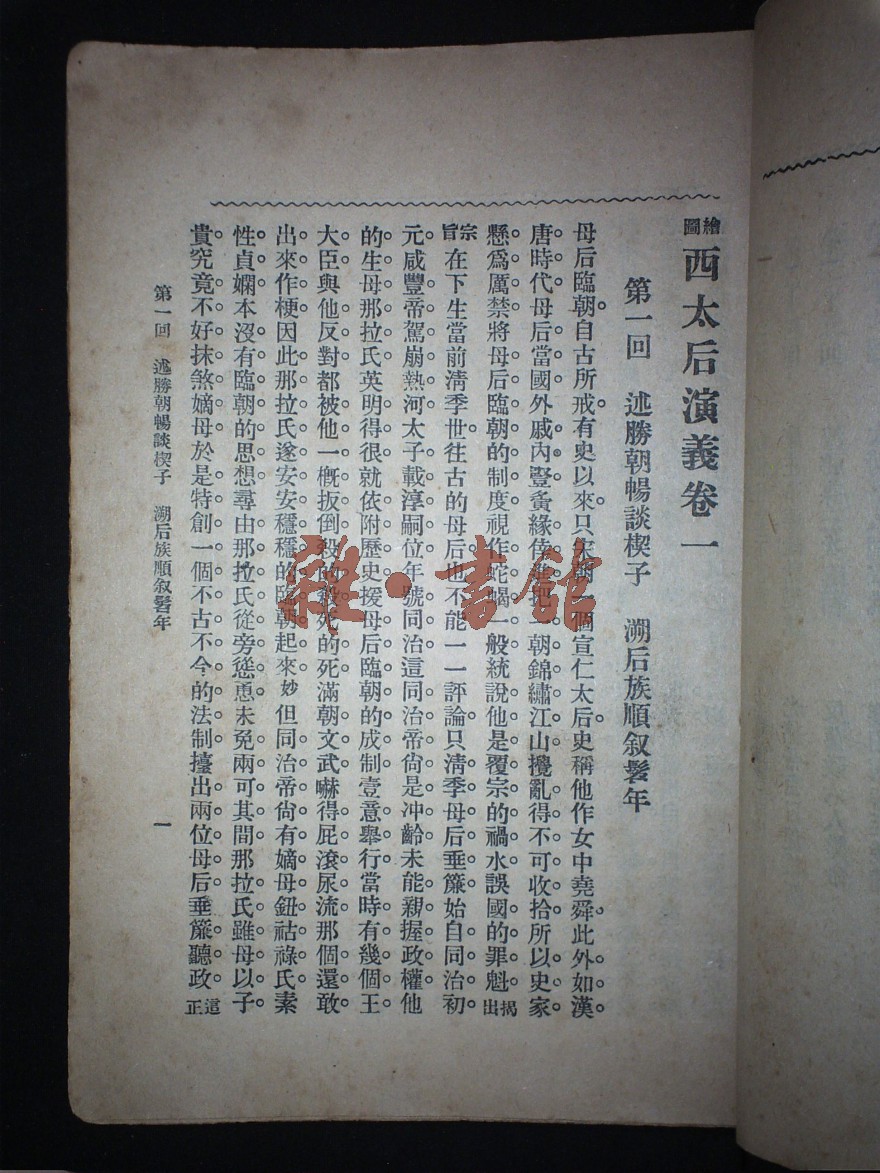 繪圖西太后演義卷一
第一回　述勝朝暢談楔子　溯后族順叙髫年
母后臨朝。自古所戒。有史以來。只宋朝一個宣仁太后。史稱他作女中堯舜。此外如漢。
唐時代。母后當國。外戚內豎。夤緣倖進。把一朝錦繡江山。攪亂得不可收拾。所以史家。
懸爲厲禁。將母后臨朝的制度。視作蛇蝎一般。統說他是覆宗的禍水。誤國的罪魁。揭出
宗旨在下生當前淸季世。往古的母后。也不能一一評論。只淸季母后垂簾。始自同治初
元。咸豐帝駕崩熱河。太子載淳嗣位。年號同治。這同治帝尙是冲齡。未能親握政權。他
的生母那拉氏。英明得很。就依附歷史。援母后臨朝的成制。壹意舉行。當時有幾個王
大臣與他反對。都被他一槪扳倒。殺的殺。死的死。滿朝文武。嚇得屁滾尿流。那個還敢
出來作梗。因此那拉氏遂安安穩穩的臨朝起來。妙但同治帝尙有嫡母鈕祜祿氏。素
性貞嫻。本沒有臨朝的思想。尋由那拉氏從旁慫恿。未免兩可其間。那拉氏雖母以子
貴。究竟不好抹煞嫡母。於是特創一個不古不今的法制。擡出兩位母后。垂簾聽政。這正
第一回　述勝朝暢談楔子　溯后族順叙髫年
一
雜·書館